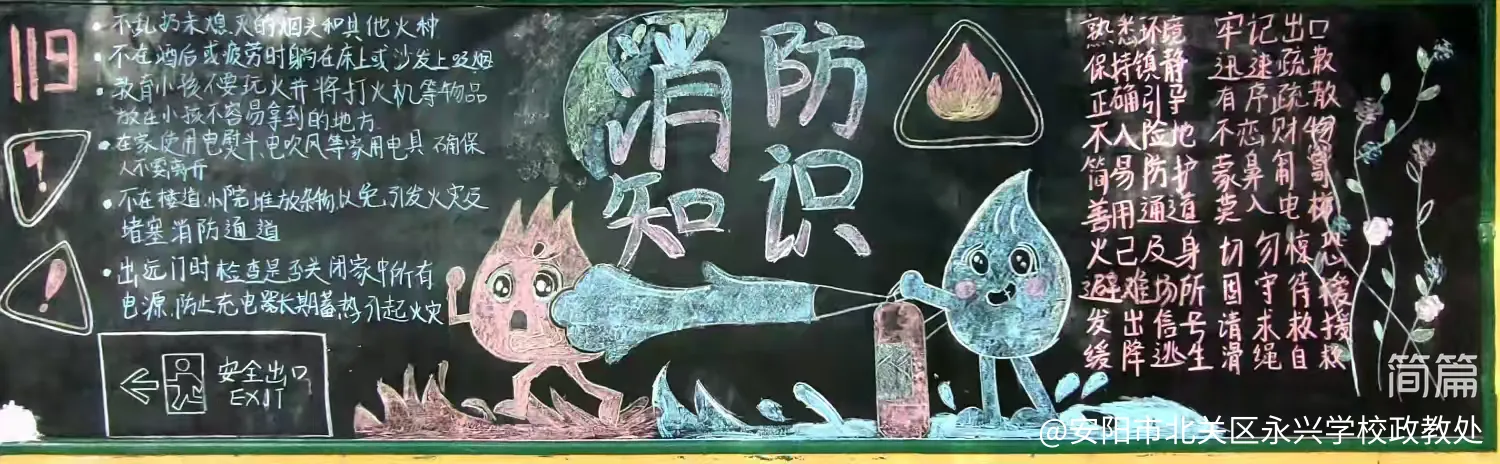 119
·不乱扔未熄灭的烟头和其他火种
·不在酒后或疲劳时躺在床上或沙发上吸烟
·教育小孩不要玩火并将打火机等物品
放在小孩不容易拿到的地方
·在家使用电熨斗、电吹风等家用电具 确保
人不要离开
·不在楼道、小院堆放杂物,以免引发火灾及
堵塞消防通道
·出远门时检查是否关闭家中所有
电源,防止充电器长期蓄热引起火灾
安全出口
EXIT
消防
知识
熟悉环境 牢记出口
保持镇静 迅速疏散
正确引导 有序疏散
不入险地 不恋财物
简易防护 蒙鼻匍匐
善用通道 莫入电梯
火已及身 切勿惊恐
避难场所 固守待援
发出信号 请求救援
缓降逃生 滑绳自救
简篇
@安阳市北关区永兴学校政教处